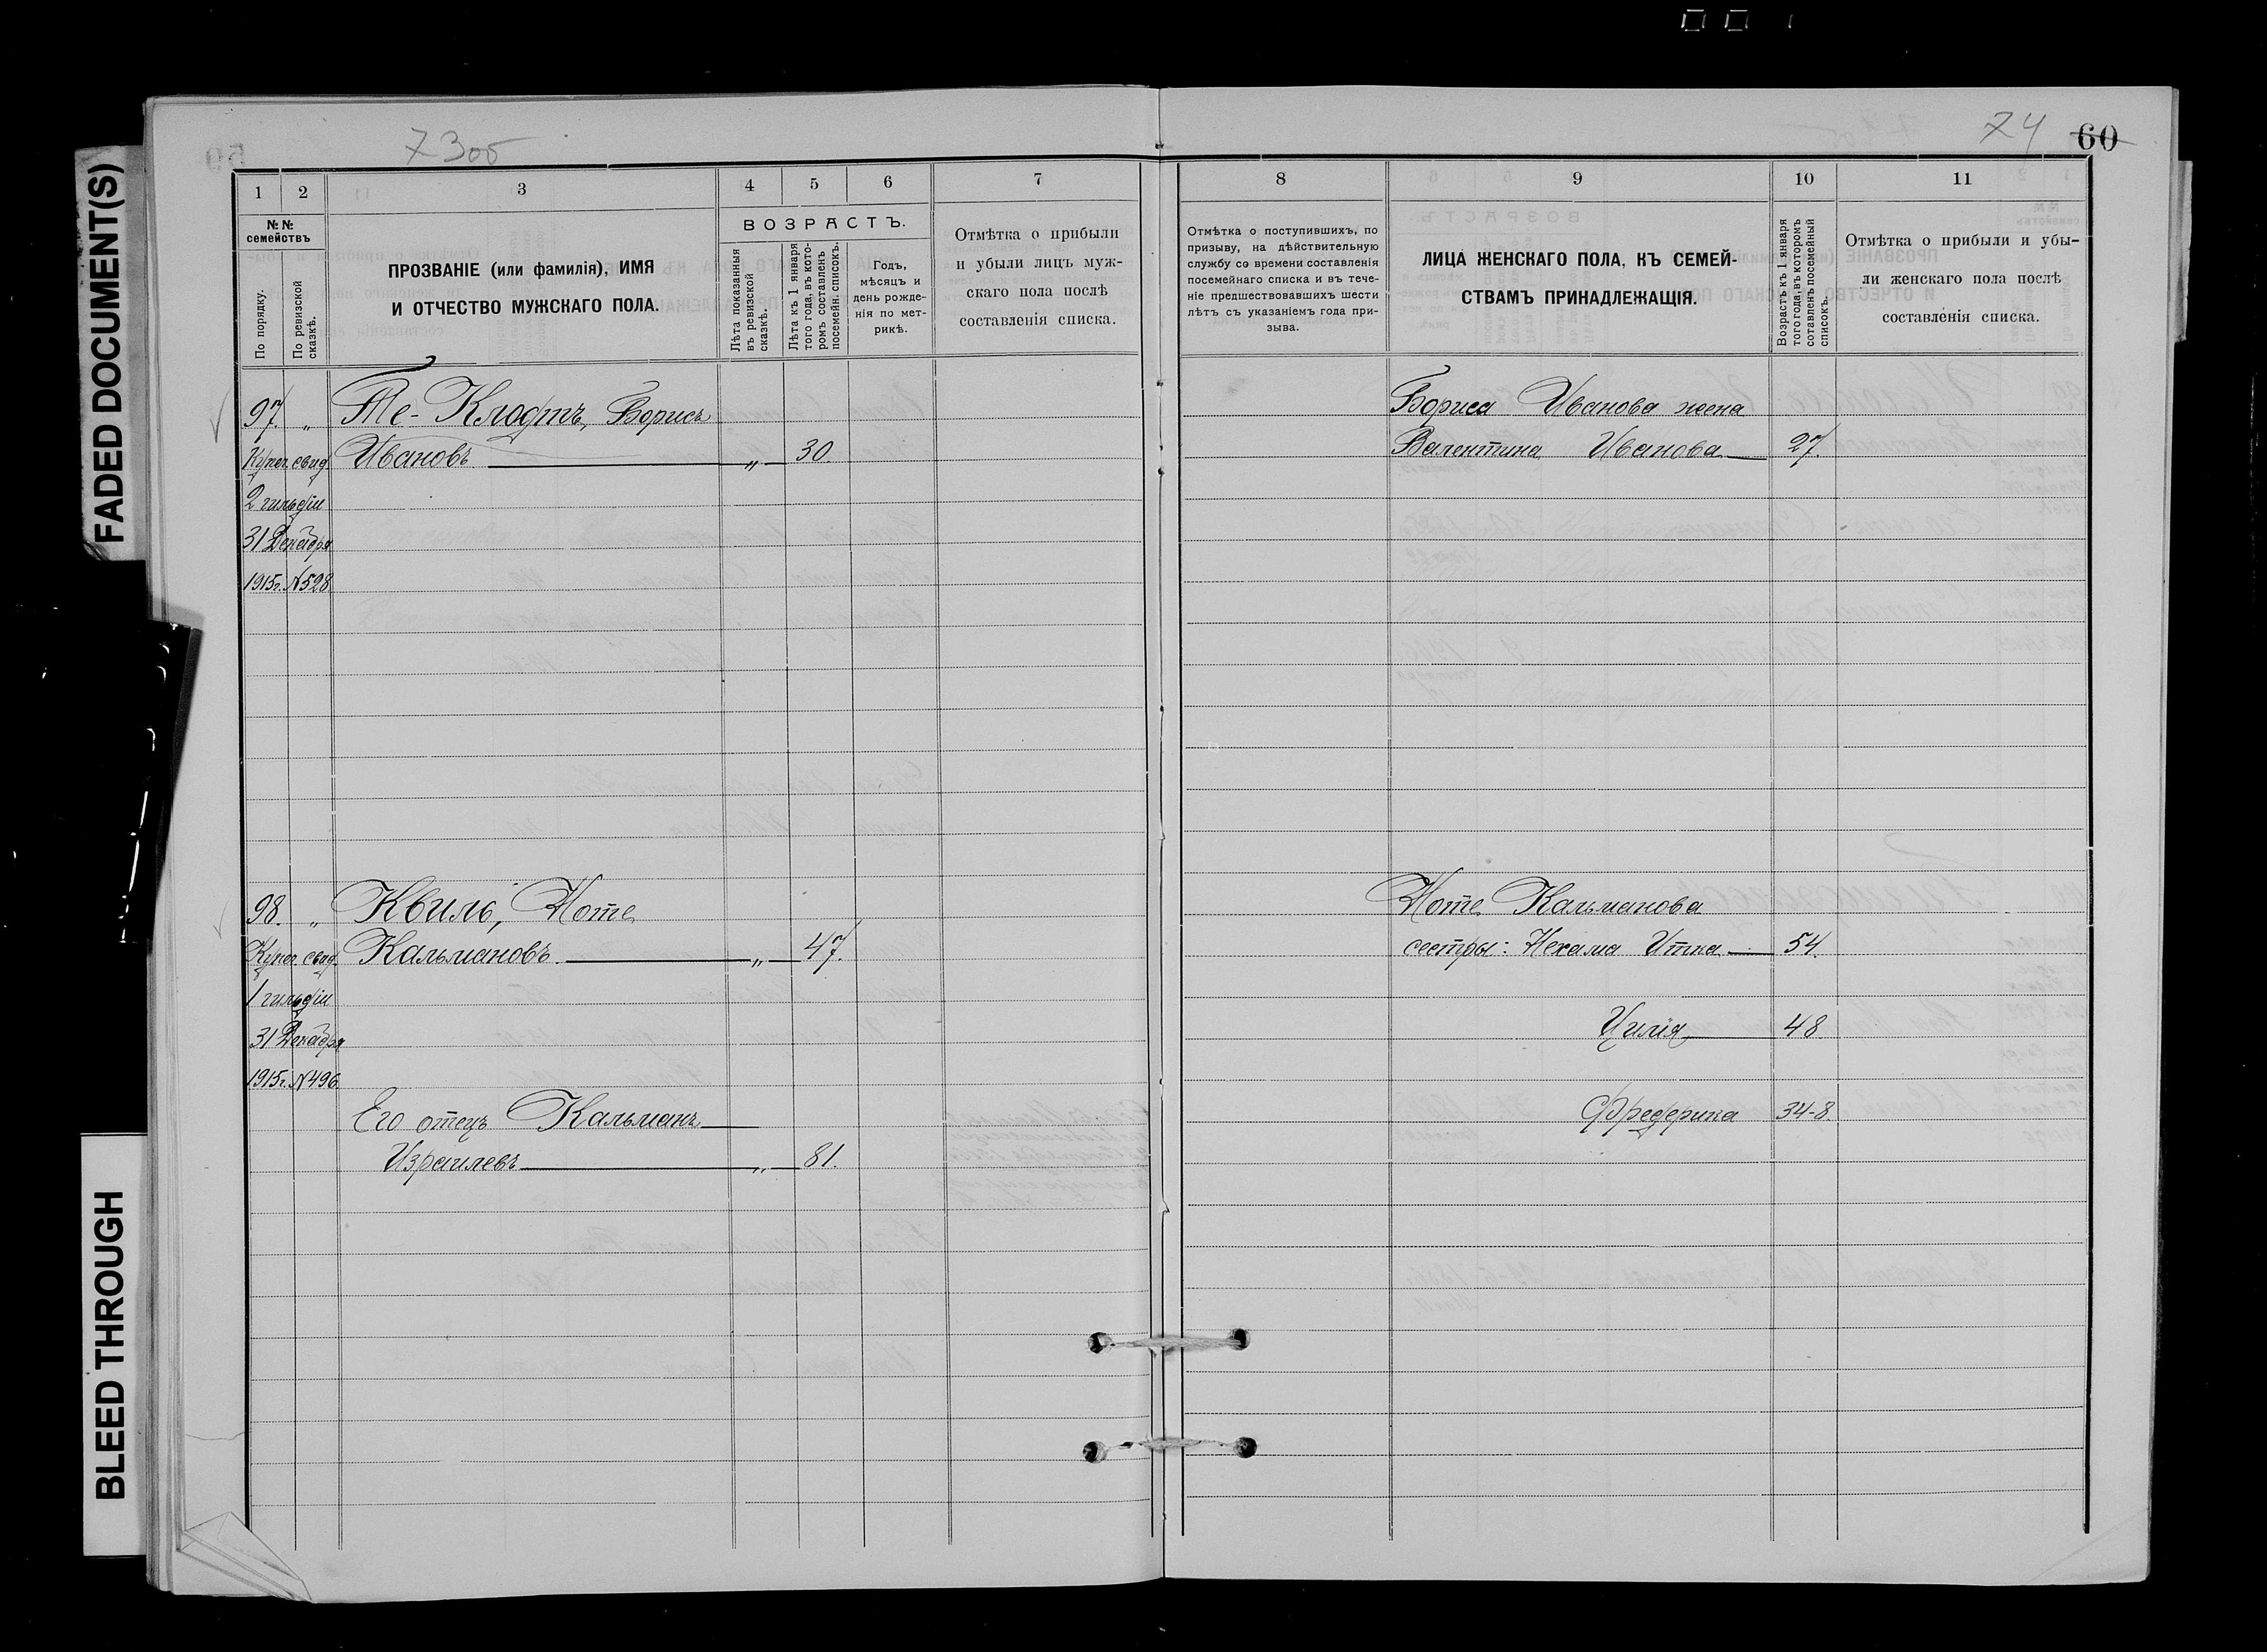 FADED DOCUMENT(S)
BLEED THROUGH
73 об
74 60
1 2 3 4 5 6 7
№№ семействъ
По порядку.
По ревизской сказкѣ.
ПРОЗВАНІЕ (или фамилія), ИМЯ
И ОТЧЕСТВО МУЖСКАГО ПОЛА.
ВОЗРАСТЪ.
Лѣта показанныя въ ревизской сказкѣ.
Лѣта къ 1 января того года, въ которомъ составленъ посемейн. списокъ.
Годъ,
мѣсяцъ и
день рожде-
нія по мет-
рикѣ.
Отмѣтка о прибыли
и убыли лицъ муж-
скаго пола послѣ
составленія списка.
97. „ Те-Клодтъ, Борисъ
Купеч. свид. Ивановъ „ 30.
2 гильдіи
31 Декабря
1915г. N528
98. „ Квиль, Ноте
Купеч. свид. Кальмановъ „ 47.
1 гильдіи
31 Декабря
1915г. N496
Его отецъ Кальманъ
Израилевъ „ 81.
8 9 10 11
Отмѣтка о поступившихъ, по
призыву, на дѣйствительную
службу со времени составленія
посемейнаго списка и въ тече-
ніе предшествовавшихъ шести
лѣтъ съ указаніемъ года при-
зыва.
ЛИЦА ЖЕНСКАГО ПОЛА, КЪ СЕМЕЙ-
СТВАМЪ ПРИНАДЛЕЖАЩІЯ.
Возрастъ къ 1 января
того года, въ которомъ
составленъ посемейный
списокъ.
Отмѣтка о прибыли и убы-
ли женскаго пола послѣ
составленія списка.
Бориса Иванова жена
Валентина Иванова 27.
Ноте Кальманова
сестры: Нехама Итка 54.
Цилія 48.
Фредерика 34-8.